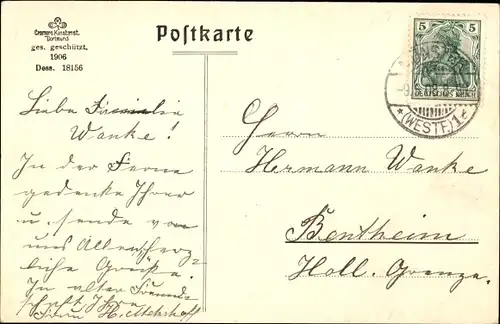 Cramers Kunstanst.
Dortmund
ges. geschützt.
1906
Dess. 18156
Postkarte
5 5
DEUTSCHES REICH
MÜNSTER
* (WESTF.) 1 *
Liebe Familie
Wanke!
In der Ferne
gedenke Ihrer
u. sende von
uns Allen herz-
liche Grüße.
In alter Freund-
schaft Ihre
Herrn
Hermann Wanke
Bentheim
Holl. Grenze.